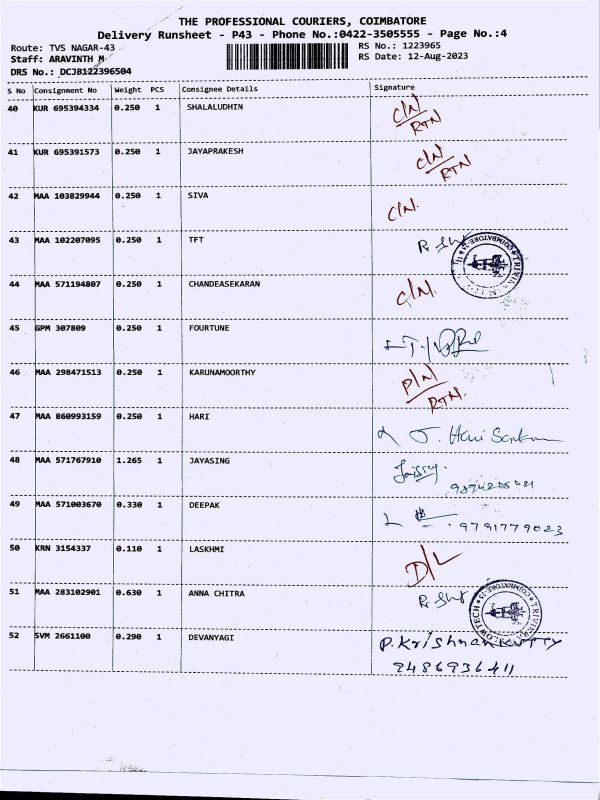 THE PROFESSIONAL COURIERS, COIMBATORE
Delivery Runsheet - P43 - Phone No.:0422-3505555 - Page No.:4
Route: TVS NAGAR-43 RS No.: 1223965
Staff: ARAVINTH M RS Date: 12-Aug-2023
DRS No.: DCJB122396504
S No Consignment No Weight PCS Consignee Details Signature
40 KUR 695394334 0.250 1 SHALALUDHIN C/N RTN
41 KUR 695391573 0.250 1 JAYAPRAKESH C/N RTN
42 MAA 103829944 0.250 1 SIVA C/N.
43 MAA 102207095 0.250 1 TFT
44 MAA 571194807 0.250 1 CHANDEASEKARAN C/N.
45 GPM 307809 0.250 1 FOURTUNE
46 MAA 298471513 0.250 1 KARUNAMOORTHY P/N RTN.
47 MAA 860993159 0.250 1 HARI
48 MAA 571767910 1.265 1 JAYASING
49 MAA 571003670 0.330 1 DEEPAK 9791779023
50 KRN 3154337 0.110 1 LASKHMI D/L
51 MAA 283102901 0.630 1 ANNA CHITRA
52 SVM 2661100 0.290 1 DEVANYAGI P.Krishnankutty
9486936411